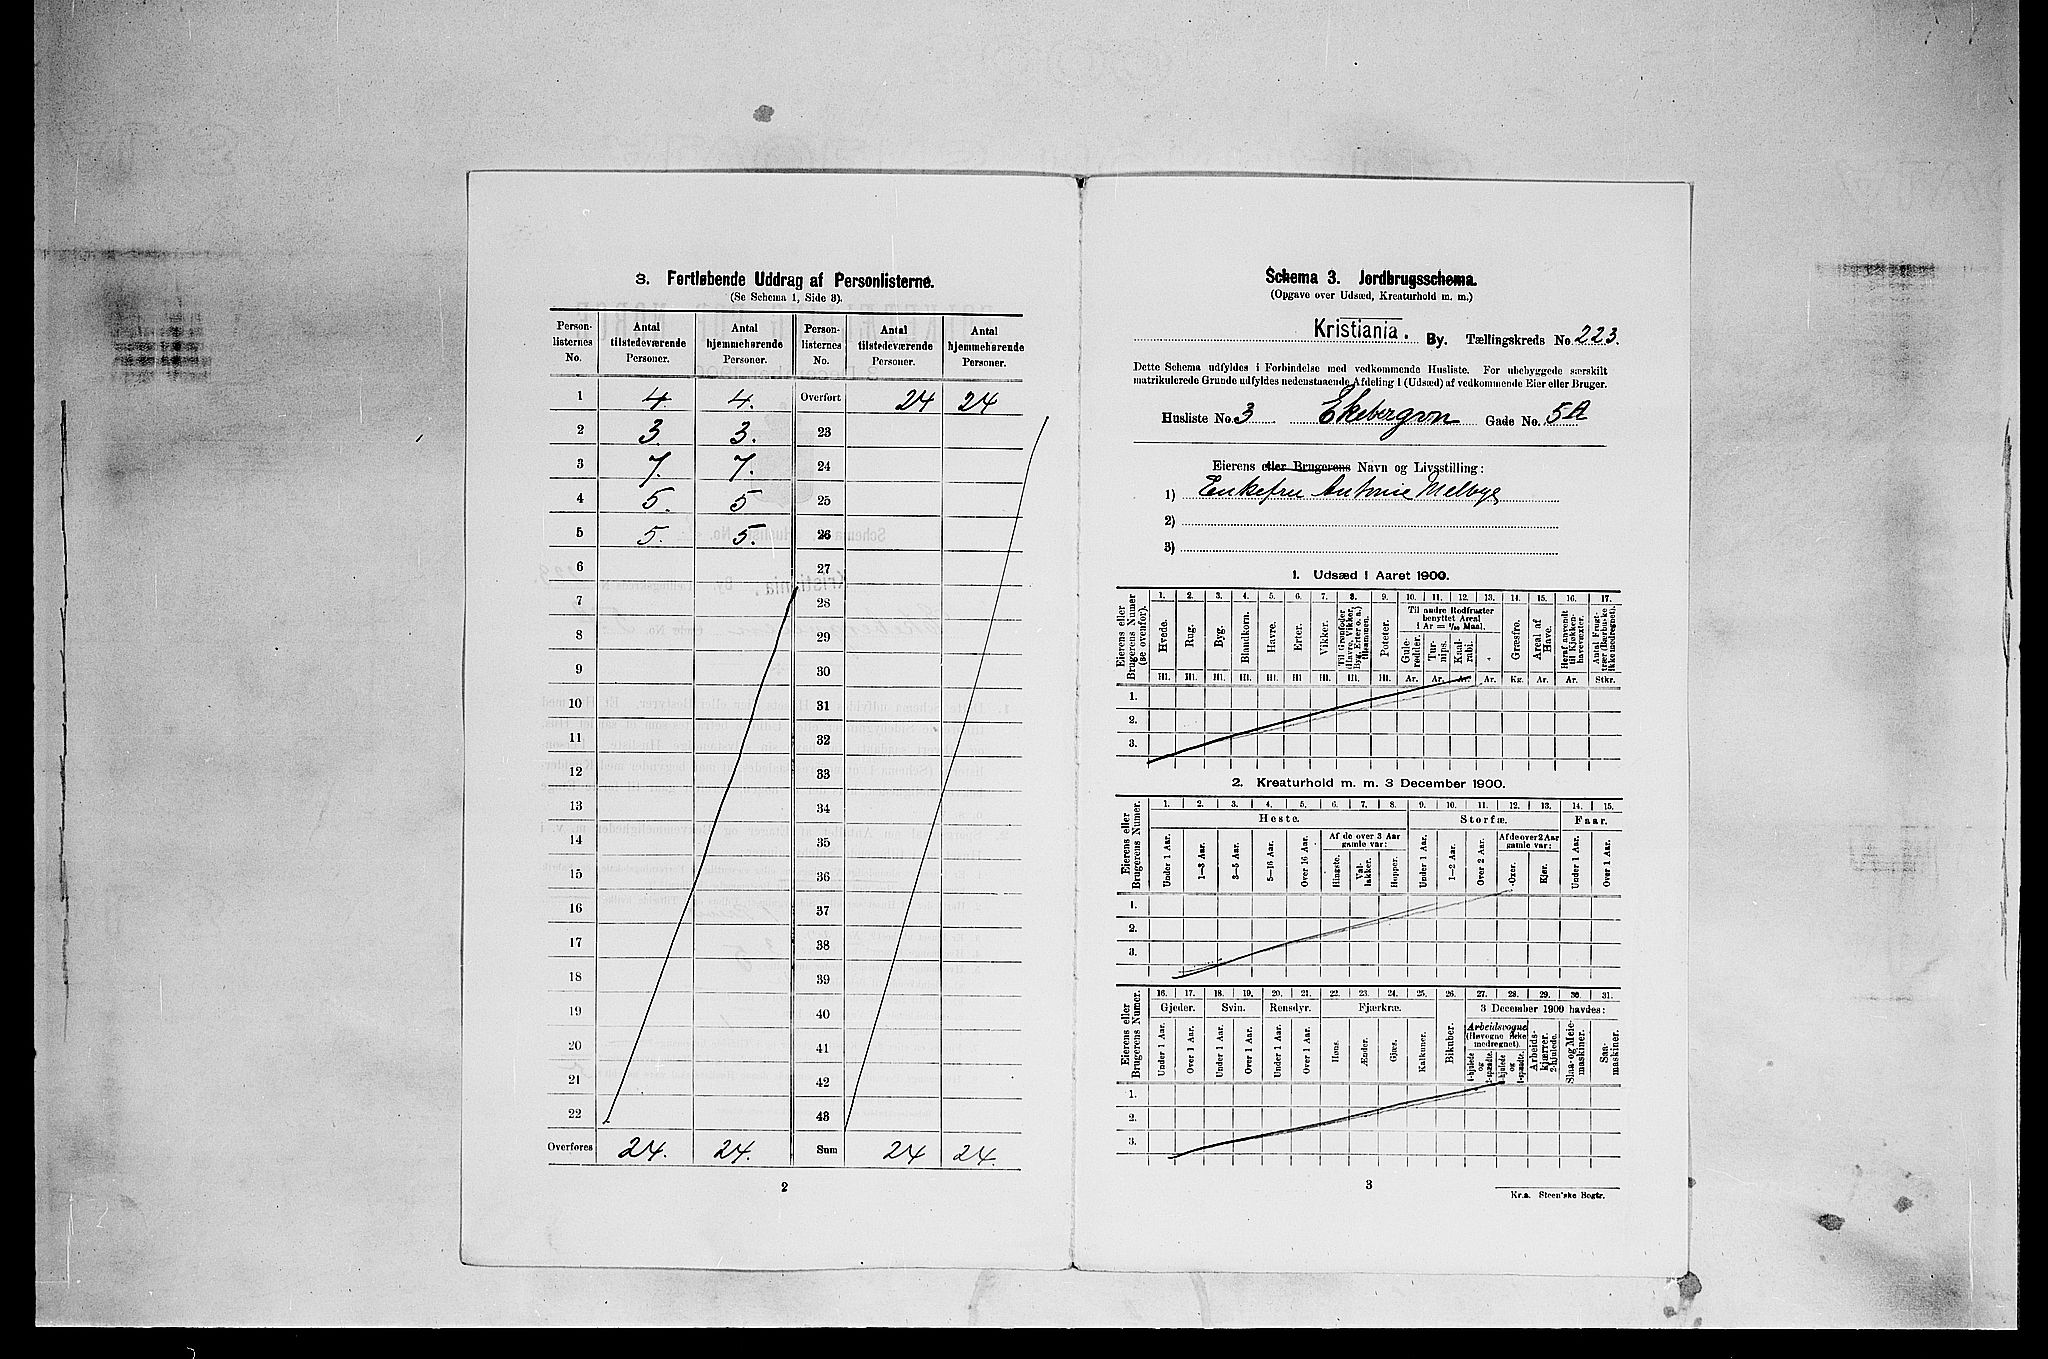 3. Fortløbende Uddrag af Personlisterne.
(Se Schema 1, Side 3).
Person-listernes No. Antal tilstedeværende Personer. Antal hjemmehørende Personer. Person-listernes No. Antal tilstedeværende Personer. Antal hjemmehørende Personer.
1 4. 4. Overført 24 24
2 3. 3. 23
3 7. 7. 24
4 5. 5 25
5 5. 5. 26
6 27
7 28
8 29
9 30
10 31
11 32
12 33
13 34
14 35
15 36
16 37
17 38
18 39
19 40
20 41
21 42
22 43
Overføres 24. 24. Sum 24 24.
2
Schema 3. Jordbrugsschema.
(Opgave over Udsæd, Kreaturhold m. m.)
Kristiania. By. Tællingskreds No. 223.
Dette Schema udfyldes i Forbindelse med vedkommende Husliste. For ubebyggede særskilt
matrikulerede Grunde udfyldes nedenstaaende Afdeling 1 (Udsæd) af vedkommende Eier eller Bruger.
Husliste No. 3 Ekebergvn Gade No. 5A
Eierens eller Brugerens Navn og Livsstilling:
1) Enkefru Antonie Melbye
2)
3)
1. Udsæd i Aaret 1900.
Eierens eller Brugerens Numer (se ovenfor).
1. 2. 3. 4. 5. 6. 7. 8. 9. 10. 11. 12. 13. 14. 15. 16. 17.
Til andre Rodfrugter benyttet Areal 1 Ar = 1/10 Maal.
Hvede. Rug. Byg. Blandkorn. Havre. Erter. Vikker. Til Grønfoder (Havre, Vikker, Byg, Erter o. a.) tilsammen. Poteter. Gule-rødder. Tur-nips. Kaal-rabi. Græsfrø. Areal af Have. Heraf anvendt til Kjøkken-havevæxter. Antal Frugt-trær (Bærbuske ikke medregnet).
Hl. Hl. Hl. Hl. Hl. Hl. Hl. Hl. Hl. Ar. Ar. Ar. Ar. Kg. Ar. Ar. Stkr.
1.
2.
3.
2. Kreaturhold m. m. 3 December 1900.
Eierens eller Brugerens Numer.
1. 2. 3. 4. 5. 6. 7. 8. 9. 10. 11. 12. 13. 14. 15.
Heste. Storfæ. Faar.
Af de over 3 Aar gamle var: Af de over 2 Aar gamle var:
Under 1 Aar. 1—3 Aar. 3—5 Aar. 5—16 Aar. Over 16 Aar. Hingste. Val-lakker. Hopper. Under 1 Aar. 1—2 Aar. Over 2 Aar. Oxer. Kjør. Under 1 Aar. Over 1 Aar.
1.
2.
3.
Eierens eller Brugerens Numer.
16. 17. 18. 19. 20. 21. 22. 23. 24. 25. 26. 27. 28. 29. 30. 31.
Gjeder. Svin. Rensdyr. Fjærkræ. 3 December 1900 havdes:
Arbeidsvogne (Høvogne ikke medregnet).
Under 1 Aar. Over 1 Aar. Under 1 Aar. Over 1 Aar. Under 1 Aar. Over 1 Aar. Høns. Ænder. Gjæs. Kalkuner. Bikuber. 4-hjulede og 2-spændte. 4-hjulede og 1-spændte. Arbeids-kjærrer, 2-hjulede. Slaa- og Meie-maskiner. Saa-maskiner.
1.
2.
3.
3
Kr.a. Steen'ske Bogtr.